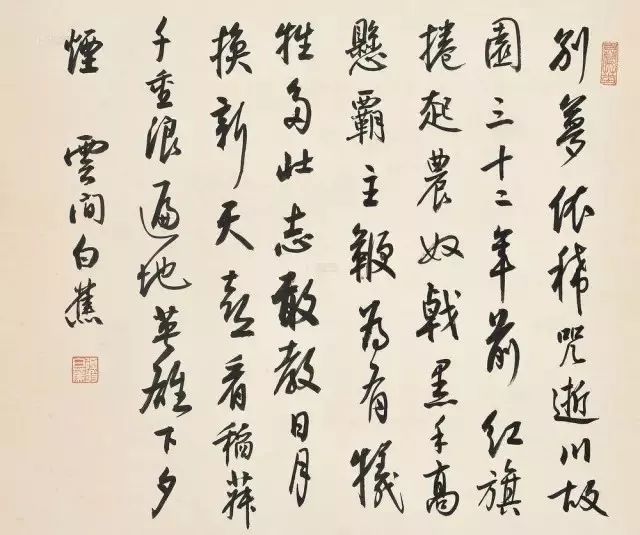 別夢依稀咒逝川故
園三十二年前红旗
捲起農奴戟黑手高
懸霸主鞭為有犧
牲多壯志敢教日月
換新天喜看稻菽
千重浪遍地英雄下夕
煙 雲間白蕉